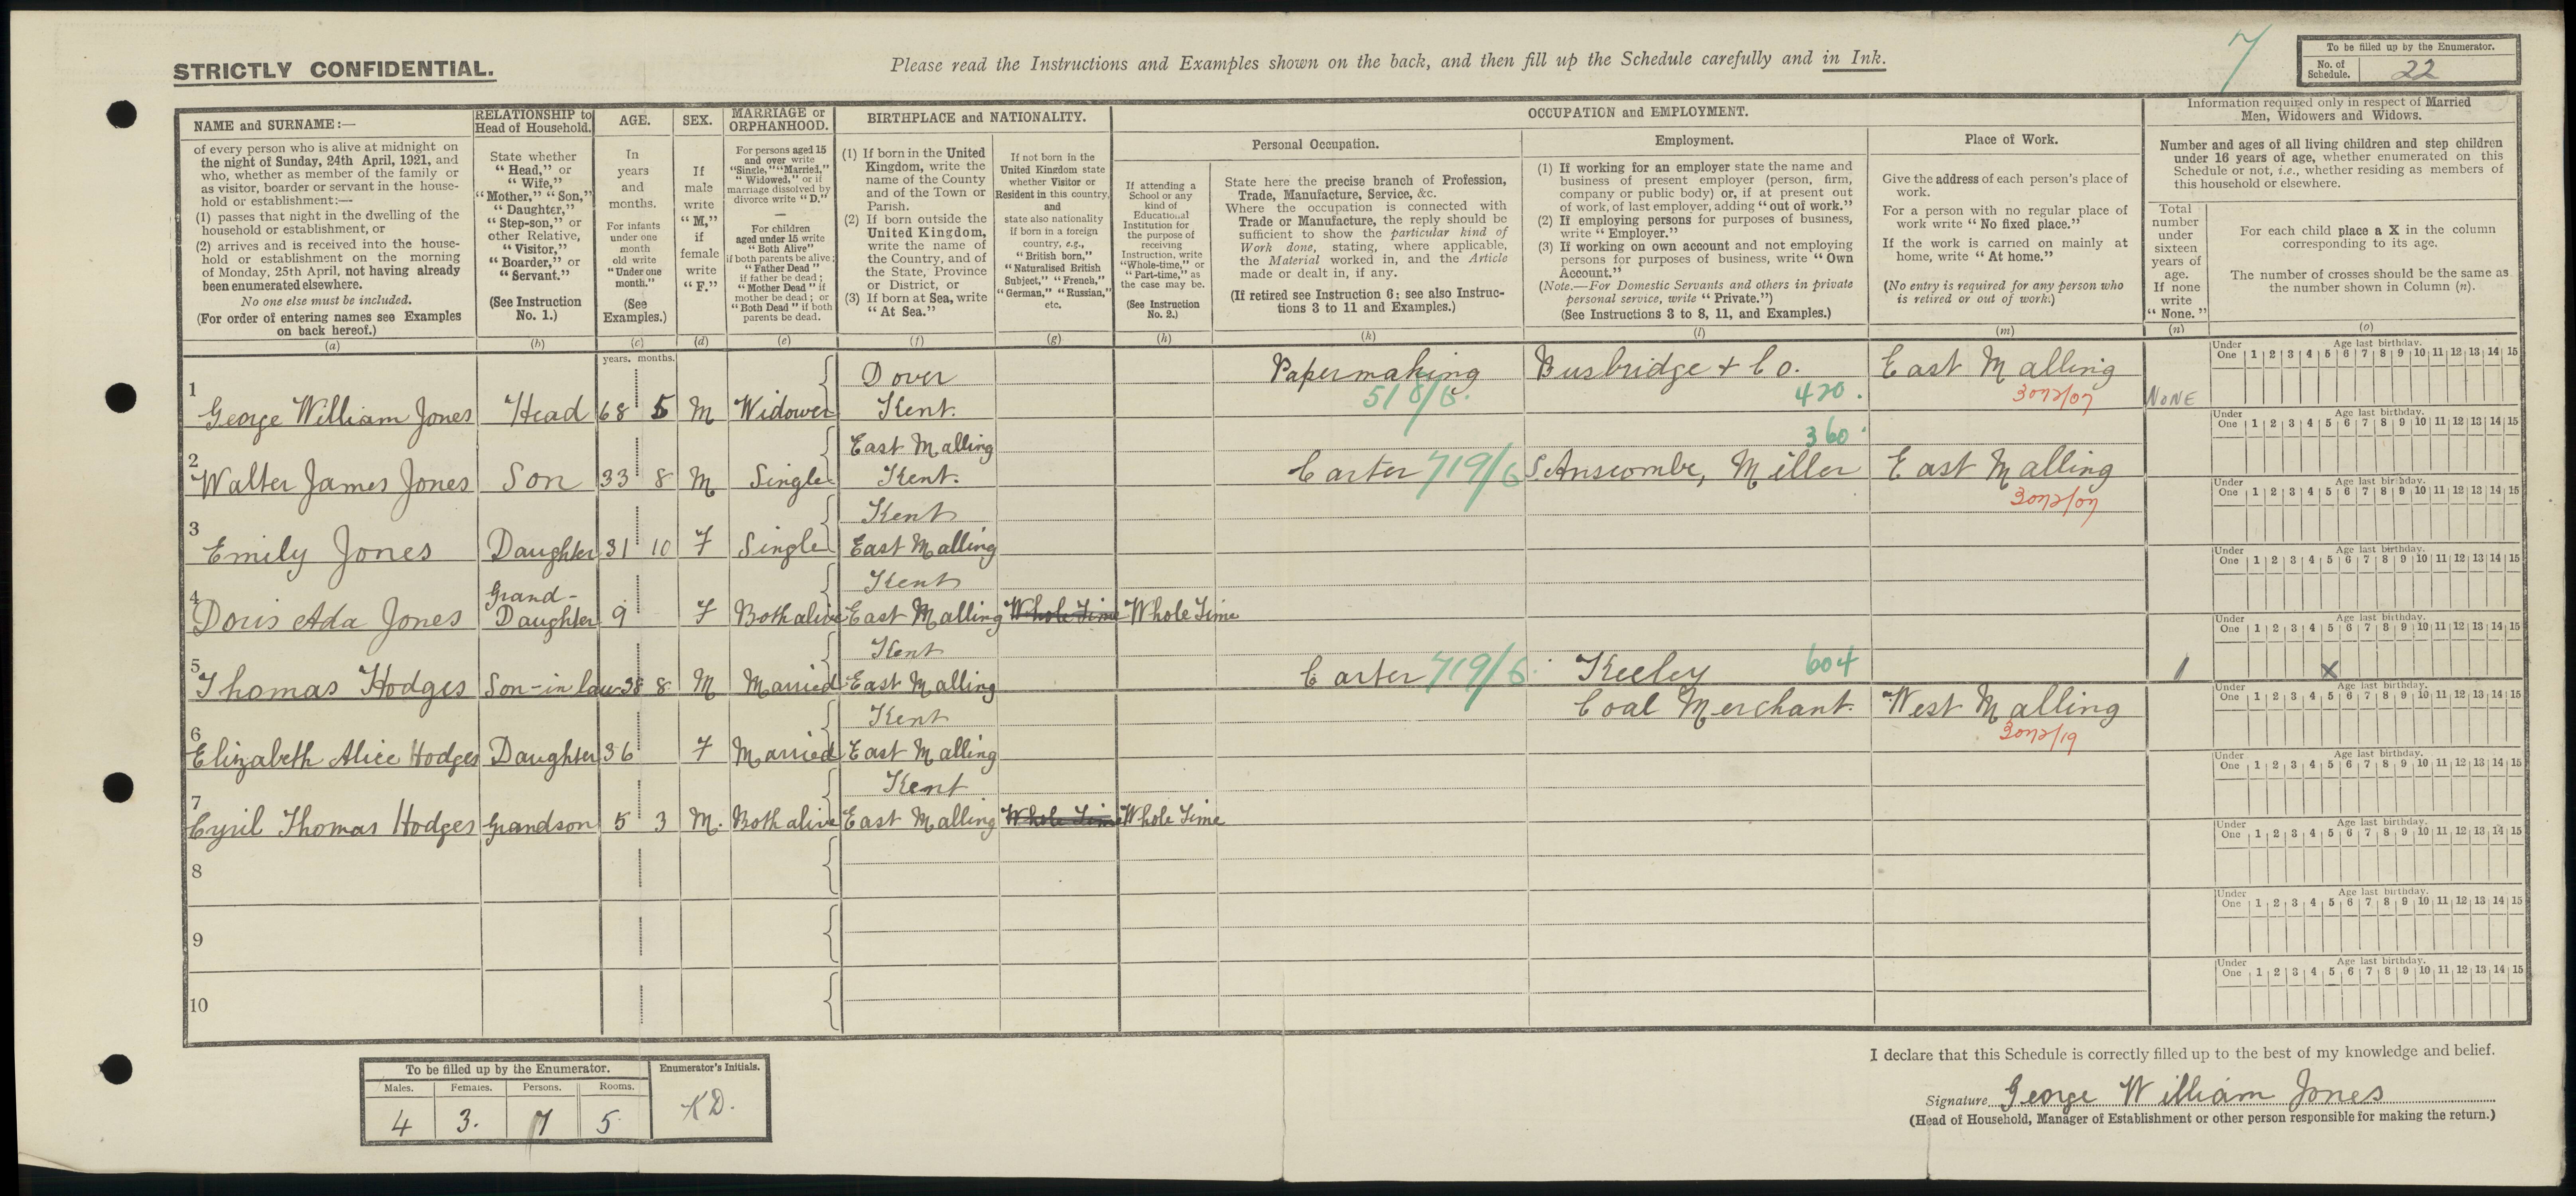 STRICTLY CONFIDENTIAL.
Please read the Instructions and Examples shown on the back, and then fill up the Schedule carefully and in Ink.
7
To be filled up by the Enumerator.
No. of Schedule. 22
NAME and SURNAME:—
of every person who is alive at midnight on
the night of Sunday, 24th April, 1921, and
who, whether as member of the family or
as visitor, boarder or servant in the house-
hold or establishment:—
(1) passes that night in the dwelling of the
household or establishment, or
(2) arrives and is received into the house-
hold or establishment on the morning
of Monday, 25th April, not having already
been enumerated elsewhere.
No one else must be included.
(For order of entering names see Examples
on back hereof.)
(a)
RELATIONSHIP to
Head of Household.
State whether
"Head," or
"Wife,"
"Mother," "Son,"
"Daughter,"
"Step-son," or
other Relative,
"Visitor,"
"Boarder," or
"Servant."
(See Instruction
No. 1.)
(b)
AGE.
In
years
and
months.
For infants
under one
month
old write
"Under one
month."
(See
Examples.)
(c)
SEX.
If
male
write
"M,"
if
female
write
"F."
(d)
MARRIAGE or
ORPHANHOOD.
For persons aged 15
and over write
"Single," "Married,"
"Widowed," or if
marriage dissolved by
divorce write "D."
—
For children
aged under 15 write
"Both Alive"
if both parents be alive;
"Father Dead"
if father be dead;
"Mother Dead" if
mother be dead; or
"Both Dead" if both
parents be dead.
(e)
BIRTHPLACE and NATIONALITY.
(1) If born in the United
Kingdom, write the
name of the County
and of the Town or
Parish.
(2) If born outside the
United Kingdom,
write the name of
the Country, and of
the State, Province
or District, or
(3) If born at Sea, write
"At Sea."
(f)
If not born in the
United Kingdom state
whether Visitor or
Resident in this country,
and
state also nationality
if born in a foreign
country, e.g.,
"British born,"
"Naturalised British
Subject," "French,"
"German," "Russian,"
etc.
(g)
OCCUPATION and EMPLOYMENT.
If attending a
School or any
kind of
Educational
Institution for
the purpose of
receiving
Instruction, write
"Whole-time," or
"Part-time," as
the case may be.
(See Instruction
No. 2.)
(h)
Personal Occupation.
State here the precise branch of Profession,
Trade, Manufacture, Service, &c.
Where the occupation is connected with
Trade or Manufacture, the reply should be
sufficient to show the particular kind of
Work done, stating, where applicable,
the Material worked in, and the Article
made or dealt in, if any.
(If retired see Instruction 6; see also Instruc-
tions 3 to 11 and Examples.)
(k)
Employment.
(1) If working for an employer state the name and
business of present employer (person, firm,
company or public body) or, if at present out
of work, of last employer, adding "out of work."
(2) If employing persons for purposes of business,
write "Employer."
(3) If working on own account and not employing
persons for purposes of business, write "Own
Account."
(Note.—For Domestic Servants and others in private
personal service, write "Private.")
(See Instructions 3 to 8, 11, and Examples.)
(l)
Place of Work.
Give the address of each person's place of
work.
For a person with no regular place of
work write "No fixed place."
If the work is carried on mainly at
home, write "At home."
(No entry is required for any person who
is retired or out of work.)
(m)
Information required only in respect of Married
Men, Widowers and Widows.
Number and ages of all living children and step children
under 16 years of age, whether enumerated on this
Schedule or not, i.e., whether residing as members of
this household or elsewhere.
Total
number
under
sixteen
years of
age.
If none
write
"None."
(n)
For each child place a X in the column
corresponding to its age.
The number of crosses should be the same as
the number shown in Column (n).
(o)
years. months.
1 George William Jones Head 68 5 M Widower Dover Kent. Papermaking 518/6. Busbridge & Co. 420. East Malling 3072/07 NONE
Under One 1 2 3 4 5 6 7 8 9 10 11 12 13 14 15 Age last birthday.
2 Walter James Jones Son 33 8 M Single East Malling Kent. Carter 719/6 360. Anscombe, Miller East Malling 3072/07
Under One 1 2 3 4 5 6 7 8 9 10 11 12 13 14 15 Age last birthday.
3 Emily Jones Daughter 31 10 F Single Kent East Malling
Under One 1 2 3 4 5 6 7 8 9 10 11 12 13 14 15 Age last birthday.
4 Doris Ada Jones Grand-Daughter 9 F Both alive Kent East Malling Whole Time Whole Time
Under One 1 2 3 4 5 6 7 8 9 10 11 12 13 14 15 Age last birthday.
5 Thomas Hodges Son-in law 38 8 M Married Kent East Malling Carter 719/6. Keeley 604 Coal Merchant. West Malling 3072/19 1 X
Under One 1 2 3 4 5 6 7 8 9 10 11 12 13 14 15 Age last birthday.
6 Elizabeth Alice Hodges Daughter 36 F Married Kent East Malling
Under One 1 2 3 4 5 6 7 8 9 10 11 12 13 14 15 Age last birthday.
7 Cyril Thomas Hodges Grandson 5 3 M. Both alive Kent East Malling Whole Time Whole Time
Under One 1 2 3 4 5 6 7 8 9 10 11 12 13 14 15 Age last birthday.
8
Under One 1 2 3 4 5 6 7 8 9 10 11 12 13 14 15 Age last birthday.
9
Under One 1 2 3 4 5 6 7 8 9 10 11 12 13 14 15 Age last birthday.
10
Under One 1 2 3 4 5 6 7 8 9 10 11 12 13 14 15 Age last birthday.
To be filled up by the Enumerator.
Males. Females. Persons. Rooms.
4 3. 7 5
Enumerator's Initials.
KD.
I declare that this Schedule is correctly filled up to the best of my knowledge and belief.
Signature George William Jones
(Head of Household, Manager of Establishment or other person responsible for making the return.)